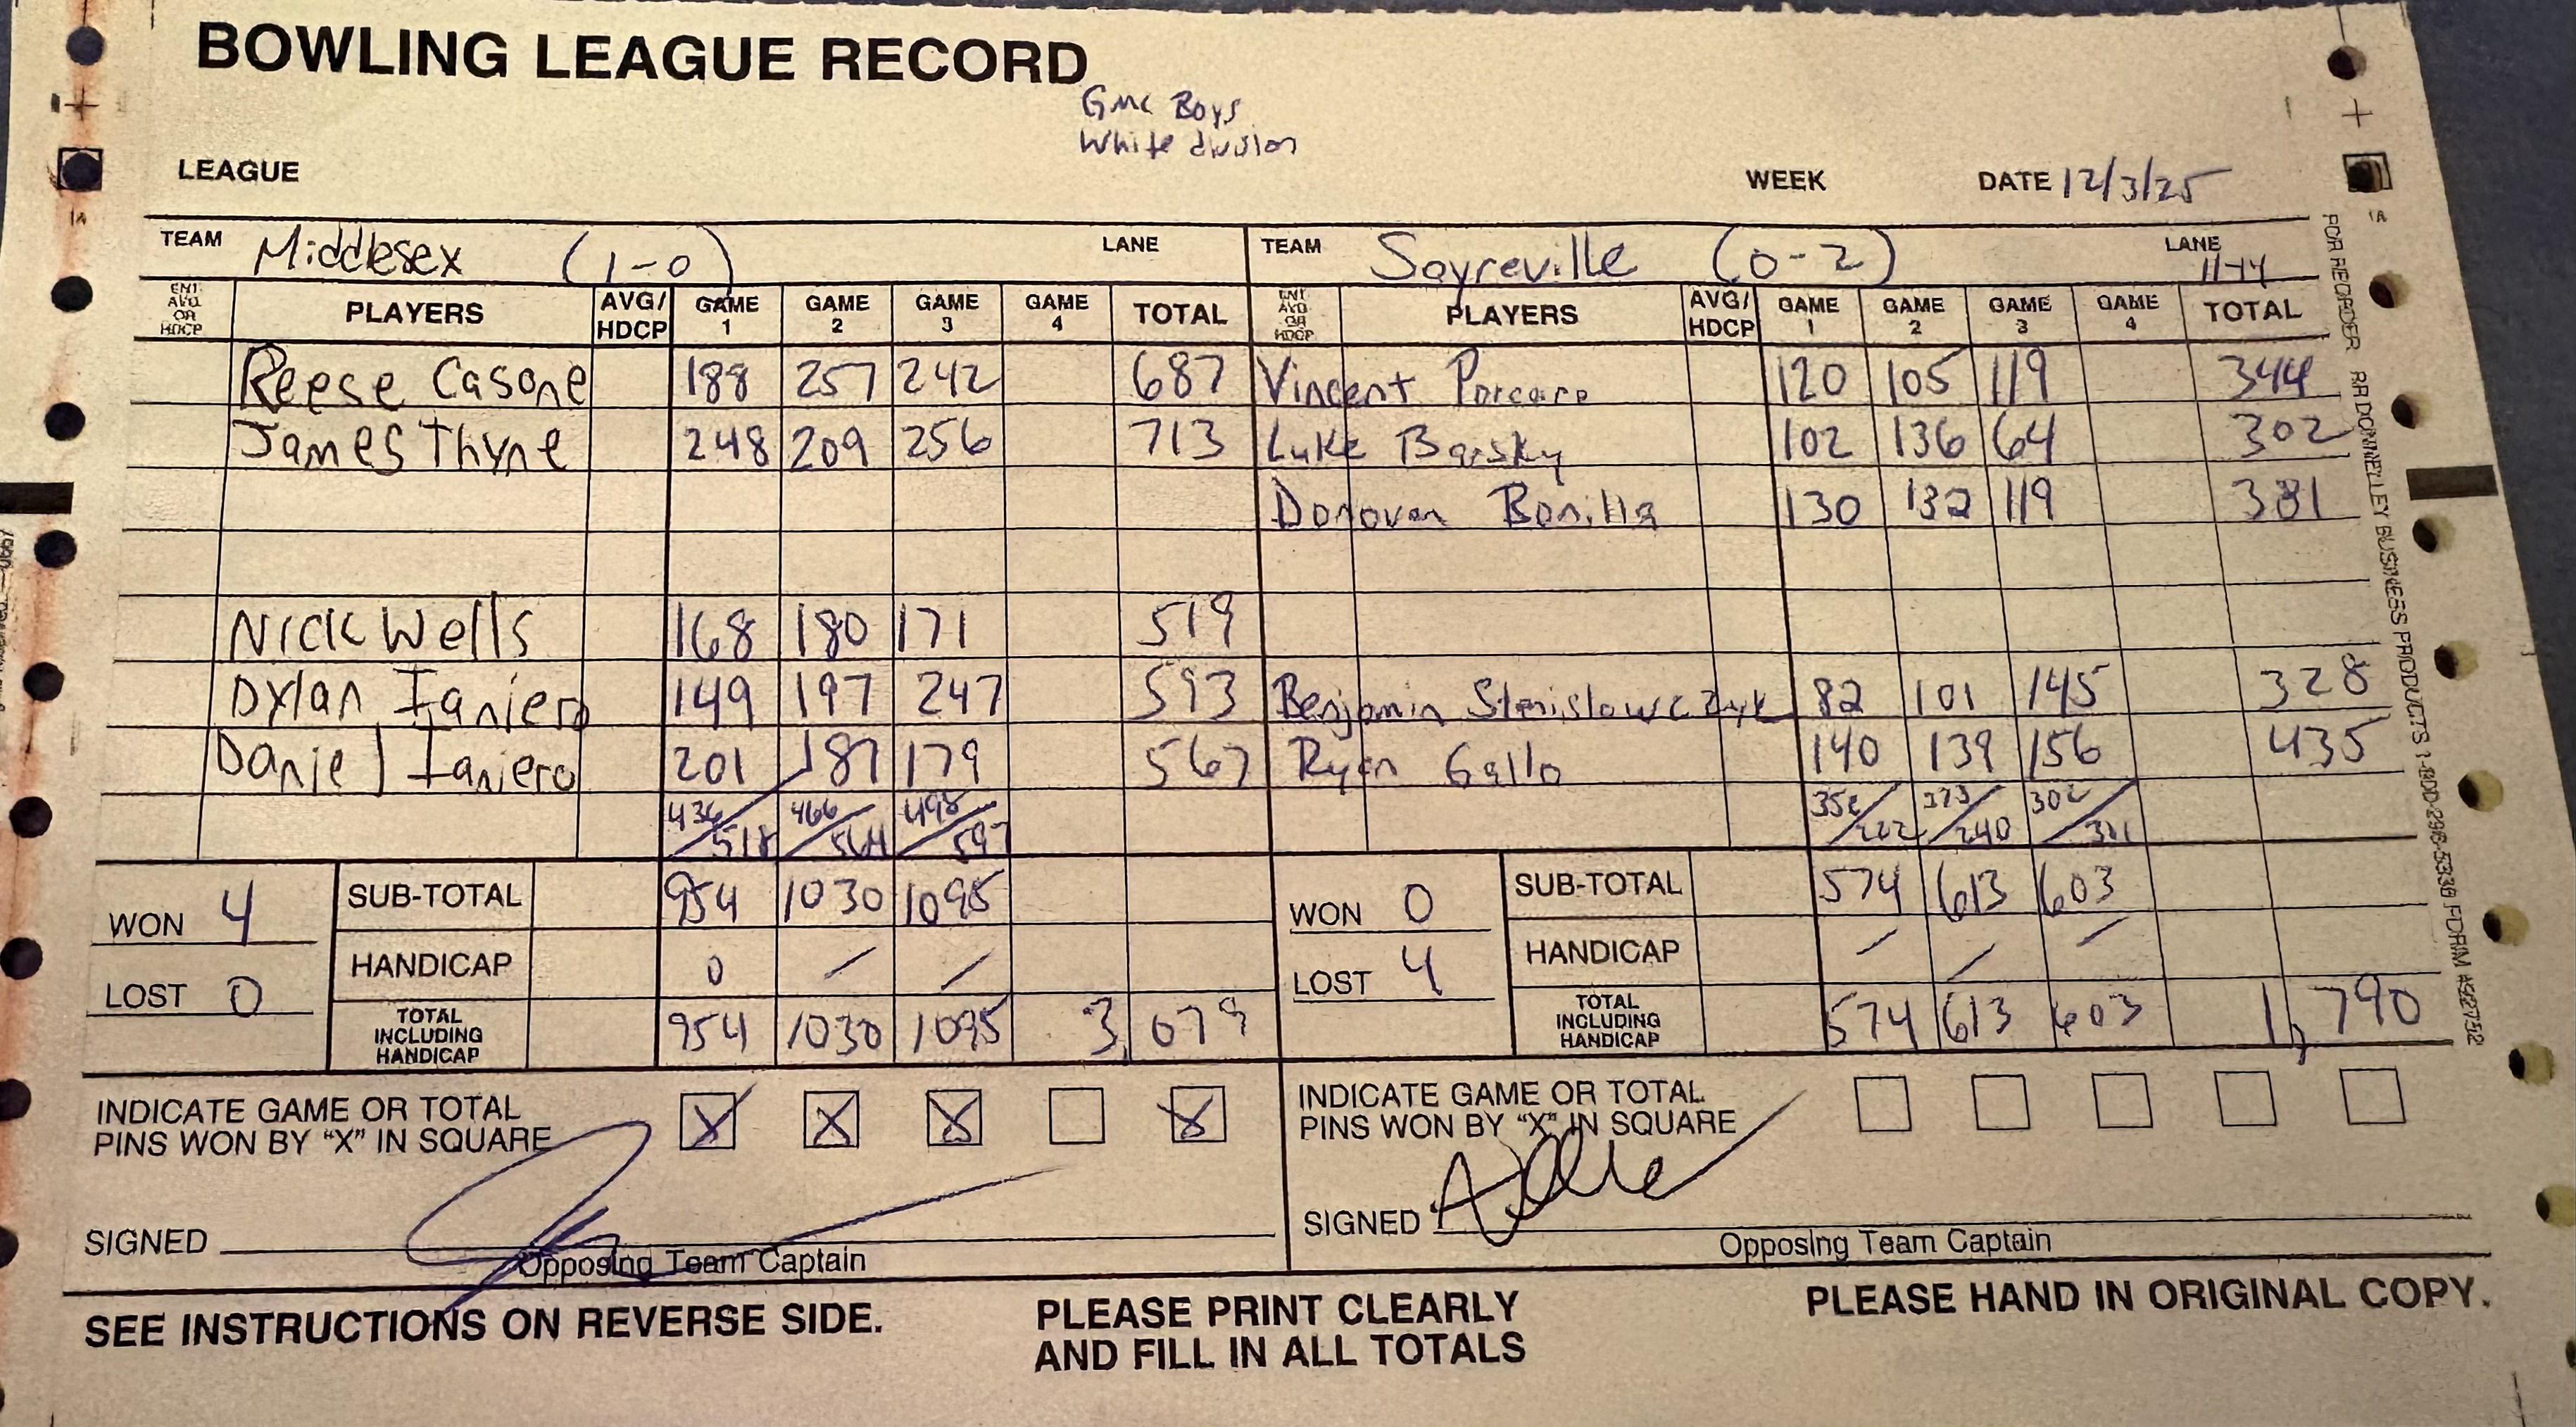 BOWLING LEAGUE RECORD
GMC Boys
White division
LEAGUE WEEK DATE 12/3/25
TEAM Middlesex (1-0) LANE TEAM Sayreville (0-2) LANE 11-14
ENT. AVG. OR HDCP. PLAYERS AVG/HDCP GAME 1 GAME 2 GAME 3 GAME 4 TOTAL ENT. AVG. OR HDCP. PLAYERS AVG/HDCP GAME 1 GAME 2 GAME 3 GAME 4 TOTAL
Reese Casone 188 257 242 687 Vincent Porcaro 120 105 119 344
James Thyne 248 209 256 713 Luke Barsky 102 136 64 302
Donovan Bonilla 130 132 119 381
Nick Wells 168 180 171 519
Dylan Ianiero 149 197 247 593 Benjamin Stanislowczyk 82 101 145 328
Daniel Ianiero 201 187 179 567 Ryan Gallo 140 139 156 435
436/518 466/564 498/597 352/222 373/240 302/301
WON 4 SUB-TOTAL 954 1030 1095 WON 0 SUB-TOTAL 574 613 603
LOST 0 HANDICAP 0 / / LOST 4 HANDICAP / / /
TOTAL INCLUDING HANDICAP 954 1030 1095 3,079 TOTAL INCLUDING HANDICAP 574 613 603 1,790
INDICATE GAME OR TOTAL PINS WON BY “X” IN SQUARE X X X X INDICATE GAME OR TOTAL PINS WON BY “X” IN SQUARE
SIGNED SIGNED
Opposing Team Captain Opposing Team Captain
SEE INSTRUCTIONS ON REVERSE SIDE. PLEASE PRINT CLEARLY AND FILL IN ALL TOTALS PLEASE HAND IN ORIGINAL COPY.
FOR REORDER RR DONNELLEY BUSINESS PRODUCTS 1-800-296-5336 FORM #922752
1A
1A